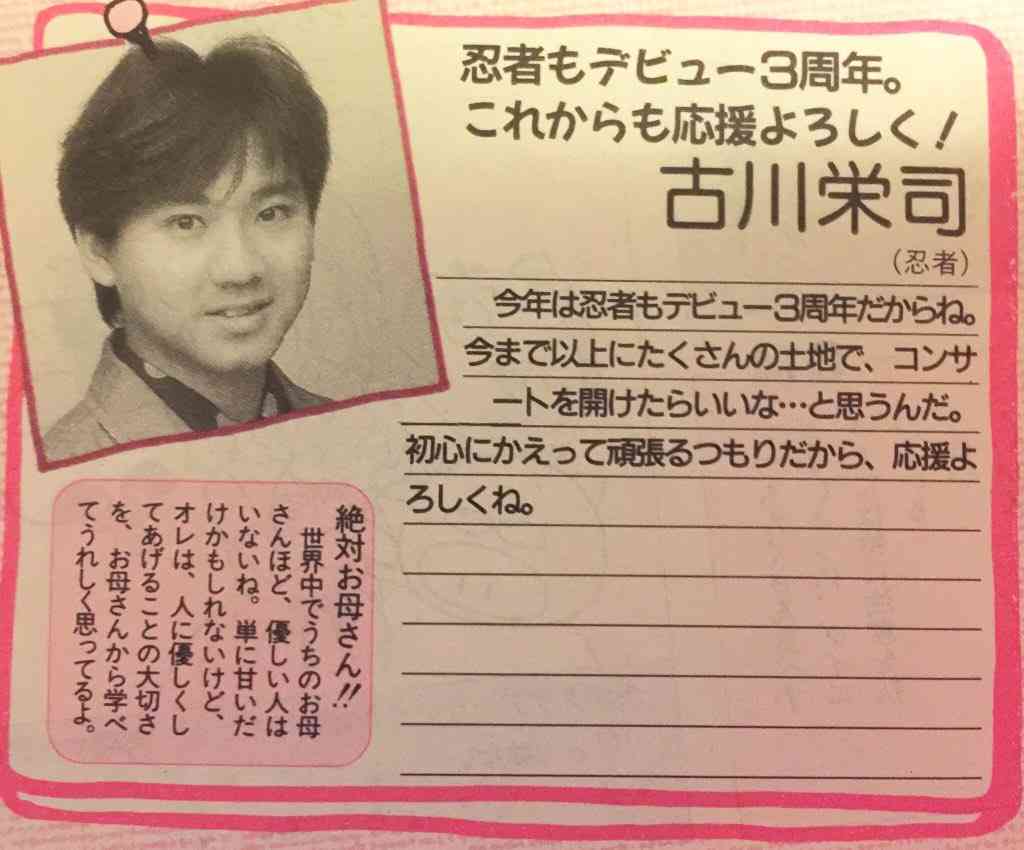 忍者もデビュー3周年。
これからも応援よろしく!
古川栄司
(忍者)
今年は忍者もデビュー3周年だからね。
今まで以上にたくさんの土地で、コンサ
ートを開けたらいいな…と思うんだ。
初心にかえって頑張るつもりだから、応援よ
ろしくね。
絶対お母さん!!
世界中でうちのお母
さんほど、優しい人は
いないね。単に甘いだ
けかもしれないけど、
オレは、人に優しくし
てあげることの大切さ
を、お母さんから学べ
てうれしく思ってるよ。